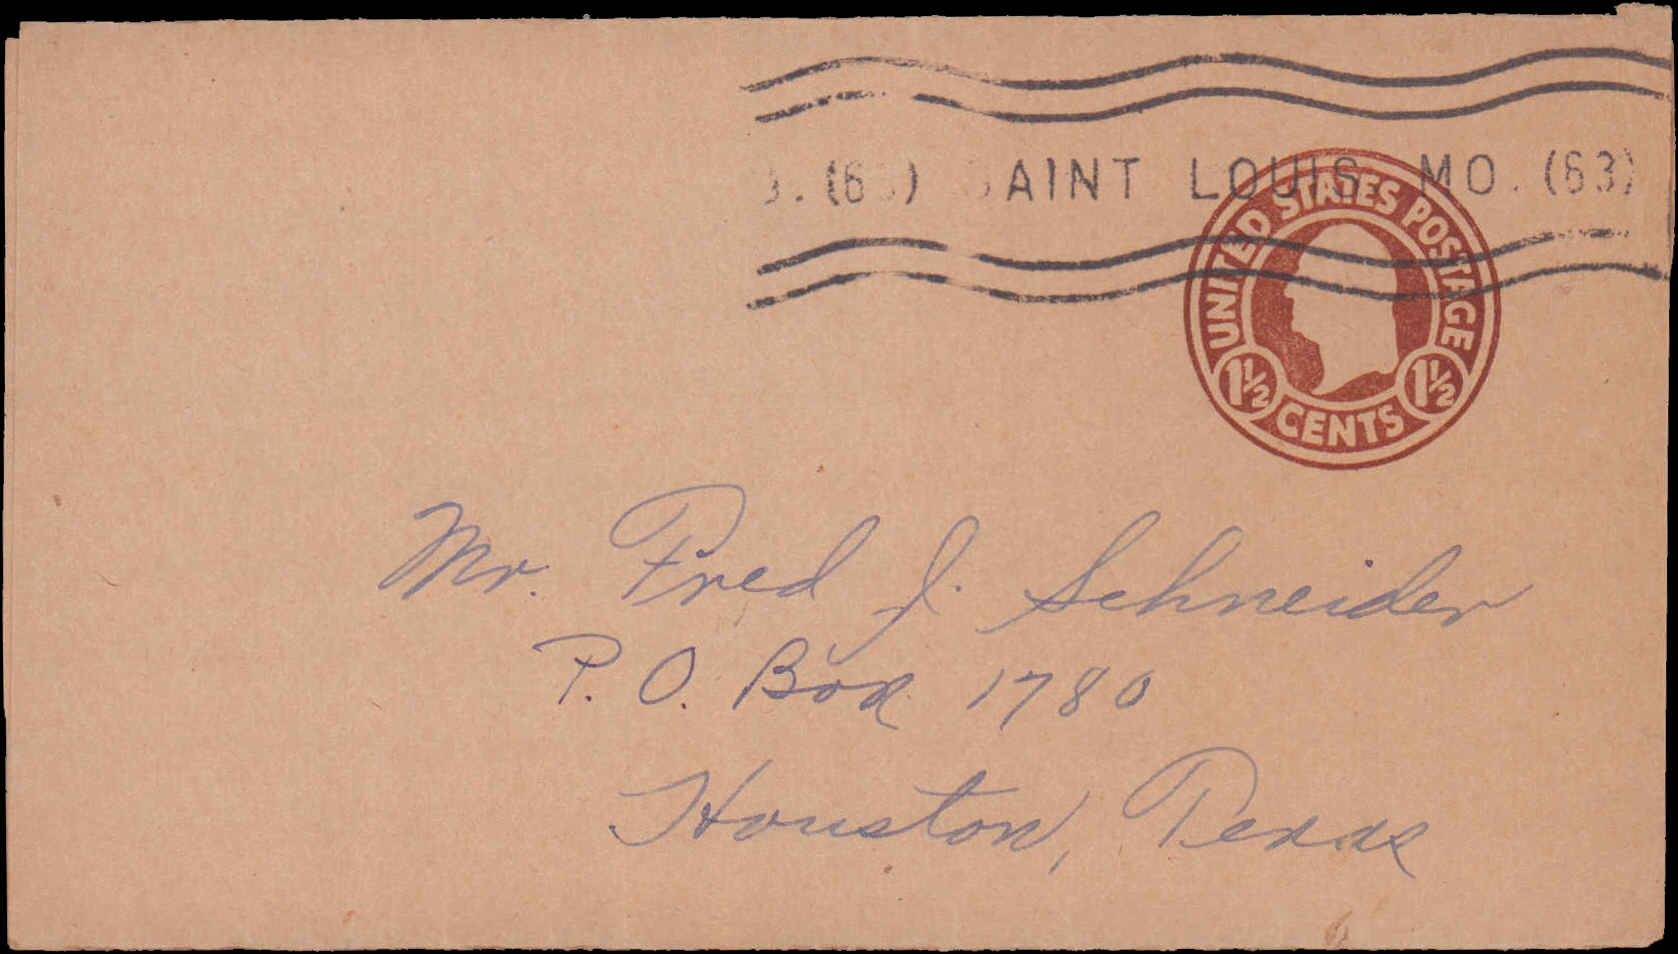 . (6 ) AINT LOUIS MO. (63)
UNITED STATES POSTAGE
1½ 1½
CENTS
Mr. Fred J. Schneider
P. O. Box 1780
Houston, Texas